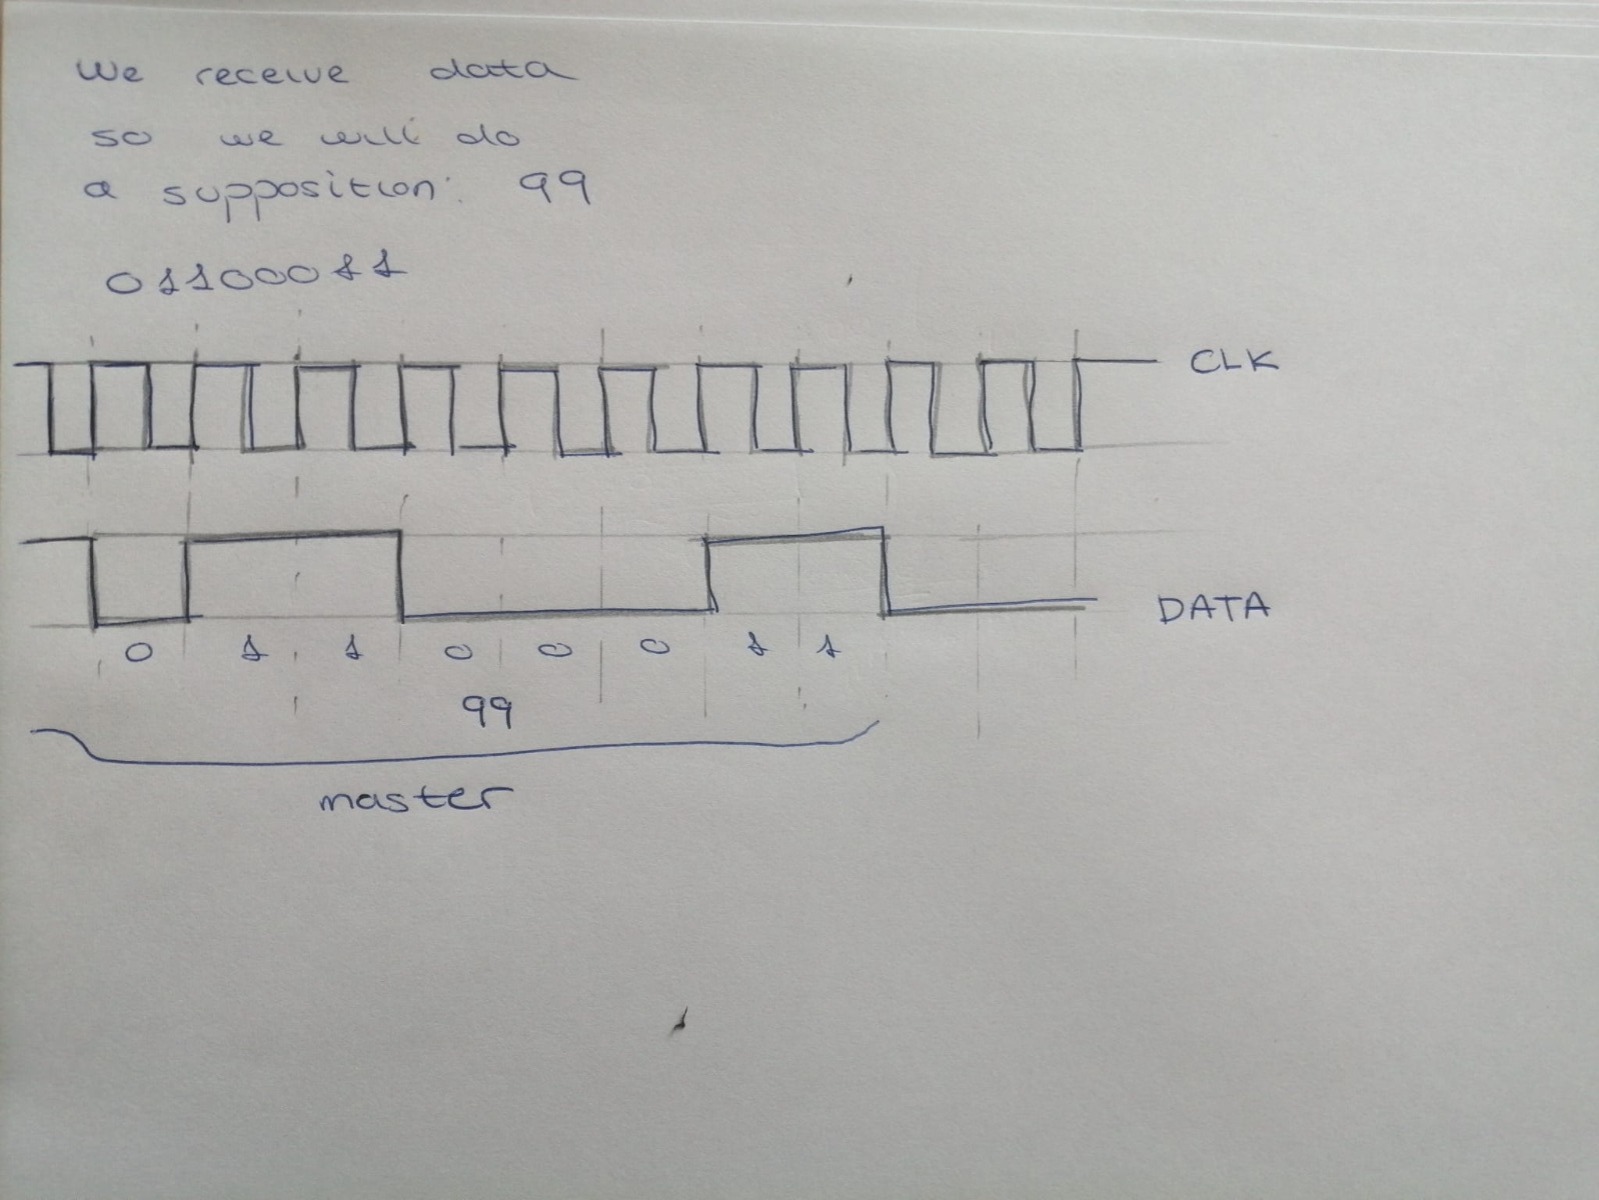 We receive data
so we will do
a supposition: 99
01100011
CLK
DATA
0 1 1 0 0 0 1 1
99
master